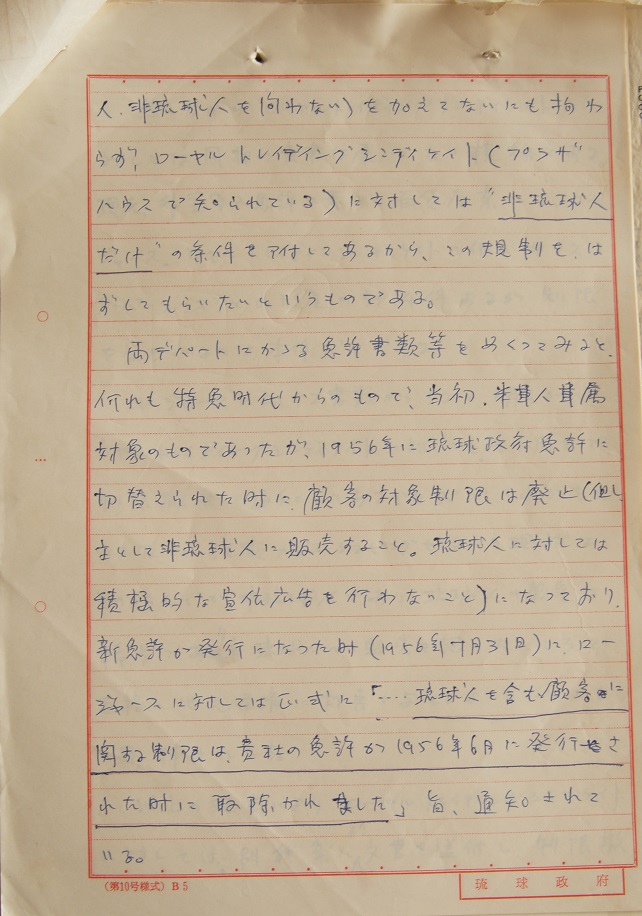 人、非琉球人を問わない)を加えてないにも拘わ
らず、ローヤルトレイデイングシンディケイト(プラザ
ハウスで知られている)に対しては"非琉球人
だけ"の条件を附してあるから、この規制を、は
ずしてもらいたいというものである。
両デパートにかゝる免許書類等をめくってみると、
何れも特免時代からのもので、当初、米軍人軍属
対象のものであったが、1956年に琉球政府免許に
切替えられた時に、顧客の対象制限は廃止(但し、
主として非琉球人に販売すること。琉球人に対しては
積極的な宣伝広告を行わないこと)になっており、
新免許が発行になった時(1956年7月31日)に、ロー
ジャースに対しては正式に「‥‥琉球人を含む顧客に
関する制限は、貴社の免許が1956年6月に発行さ
れた時に取除かれました」旨、通知されて
いる。
(第10号様式) B5
琉球政府